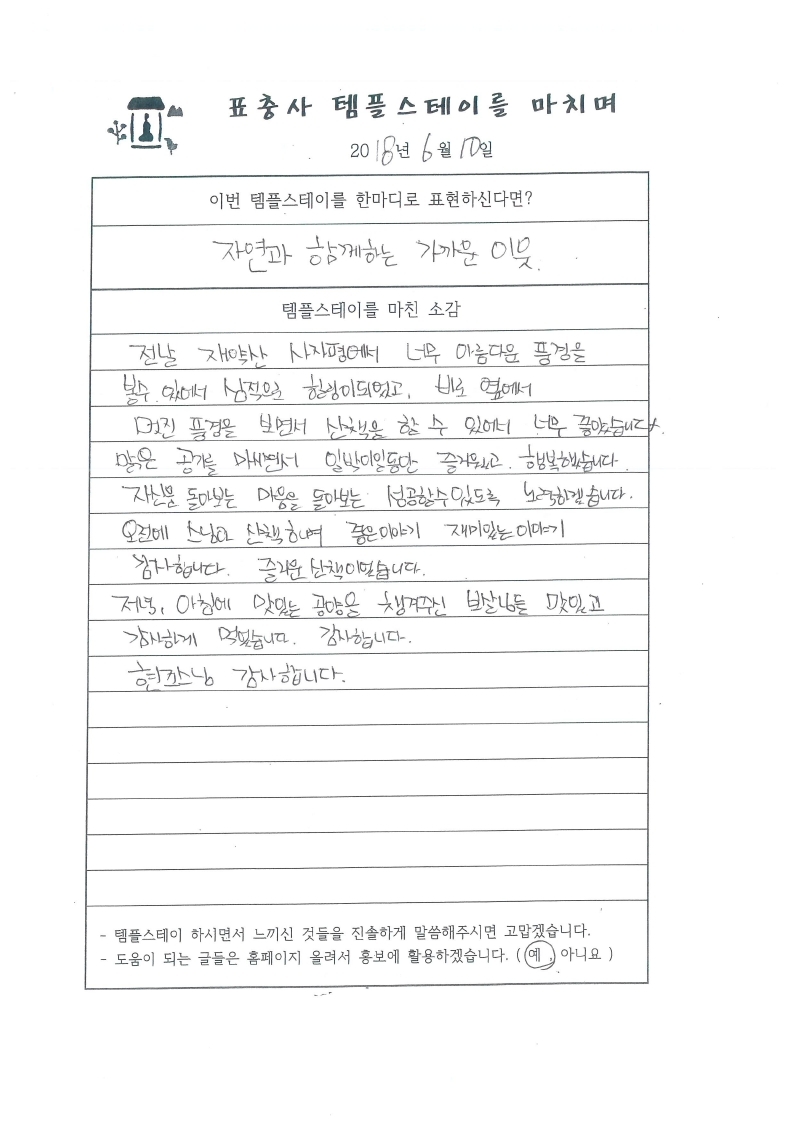 표충사 템플스테이를 마치며
2018년 6월 10일
이번 템플스테이를 한마디로 표현하신다면?
자연과 함께하는 가까운 이웃.
템플스테이를 마친 소감
전날 재약산 사자평에서 너무 아름다운 풍경을
볼수 있어서 심적으로 힐링이되었고, 바로 옆에서
멋진 풍경을 보면서 산책을 할 수 있어서 너무 좋았습니다.
맑은 공기를 마시면서 일박이일동안 즐거웠고. 행복했습니다.
자신을 돌아보는 마음을 돌아보는 성공할수있도록 노력하겠습니다.
오전에 스님과 산책하며 좋은이야기 재미있는이야기
감사합니다. 즐거운 산책이었습니다.
저녁, 아침에 맛있는 공양을 챙겨주신 보살님들 맛있고
감사하게 먹었습니다. 감사합니다.
현조스님 감사합니다.
- 템플스테이 하시면서 느끼신 것들을 진솔하게 말씀해주시면 고맙겠습니다.
- 도움이 되는 글들은 홈페이지 올려서 홍보에 활용하겠습니다. ( 예 , 아니요 )